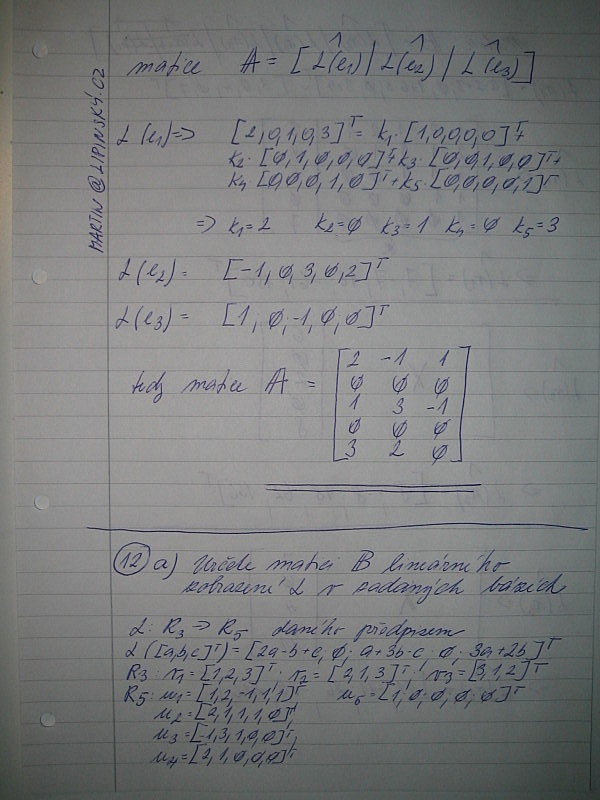 MARTIN@LIPINSKÝ.CZ
matice A = [ L(e1)^ | L(e2)^ | L(e3)^ ]
L(e1) => [2,0,1,0,3]^T = k1·[1,0,0,0,0]^T+
k2·[0,1,0,0,0]^T+k3·[0,0,1,0,0]^T+
k4[0,0,0,1,0]^T+k5·[0,0,0,0,1]^T
=> k1=2 k2=0 k3=1 k4=0 k5=3
L(e2)= [-1,0,3,0,2]^T
L(e3)= [1,0,-1,0,0]^T
tedy matice A =
2 -1 1
0 0 0
1 3 -1
0 0 0
3 2 0
12 a) Určete matici B lineárního
zobrazení L v zadaných bázích
L: R3 -> R5 daného předpisem
L([a,b,c]^T) = [2a-b+c; 0; a+3b-c; 0; 3a+2b]^T
R3: v1=[1,2,3]^T; v2=[2,1,3]^T; v3=[3,1,2]^T
R5: u1=[1,2,-1,1,1]^T u5=[1,0,0,0,0]^T
u2=[2,1,1,1,0]^T,
u3=[1,3,1,0,0]^T,
u4=[2,1,0,0,0]^T,